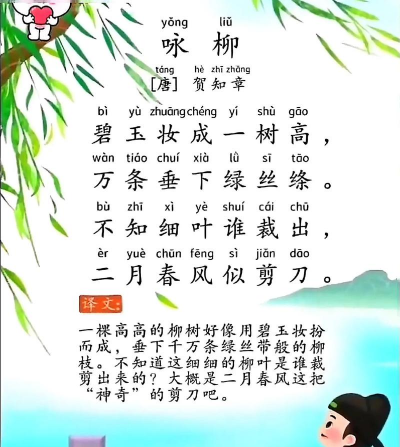 yǒng liǔ
咏柳
táng hè zhī zhāng
[唐] 贺知章
bì yù zhuāng chéng yí shù gāo
碧玉妆成一树高，
wàn tiáo chuí xià lǜ sī tāo
万条垂下绿丝绦。
bù zhī xì yè shuí cái chū
不知细叶谁裁出，
èr yuè chūn fēng sì jiǎn dāo
二月春风似剪刀。
译文:
一棵高高的柳树好像用碧玉妆扮
而成，垂下千万条绿丝带般的柳
枝。不知道这细细的柳叶是谁裁
剪出来的？大概是二月春风这把
“神奇”的剪刀吧。